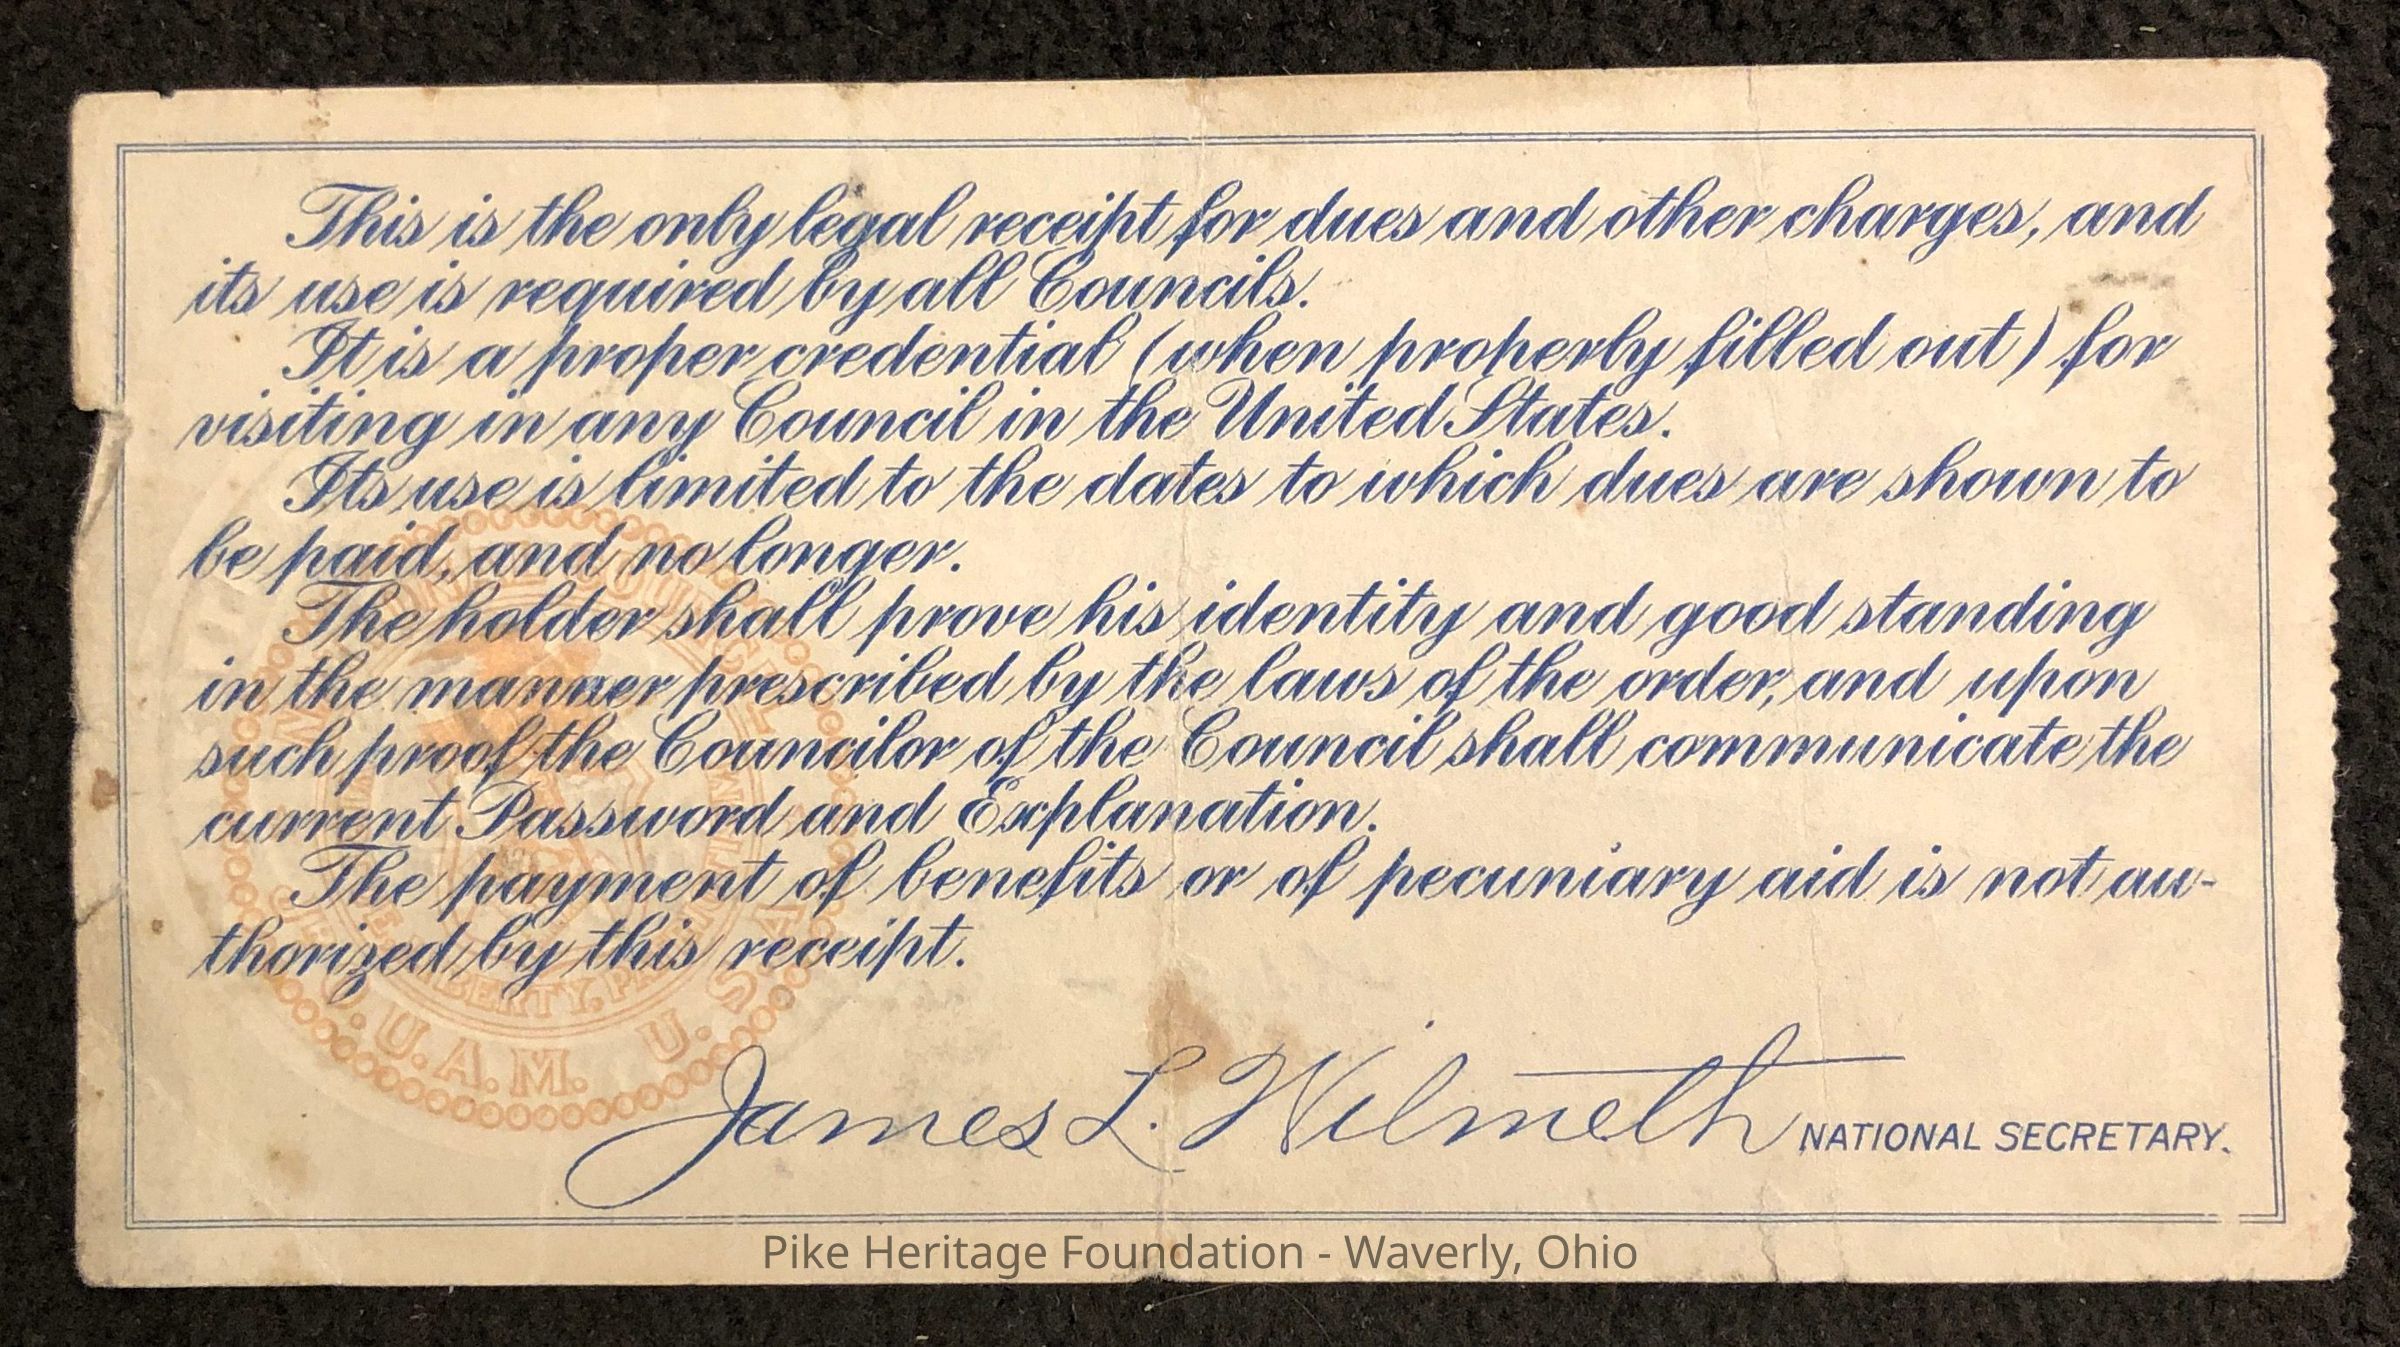 This is the only legal receipt for dues and other charges, and
its use is required by all Councils.
It is a proper credential (when properly filled out) for
visiting in any Council in the United States.
Its use is limited to the dates to which dues are shown to
be paid, and no longer.
The holder shall prove his identity and good standing
in the manner prescribed by the laws of the order, and upon
such proof the Councilor of the Council shall communicate the
current Password and Explanation.
The payment of benefits or of pecuniary aid is not au-
thorized by this receipt.
O.U.A.M. U.S.
James L. Wilmeth NATIONAL SECRETARY.
Pike Heritage Foundation - Waverly, Ohio